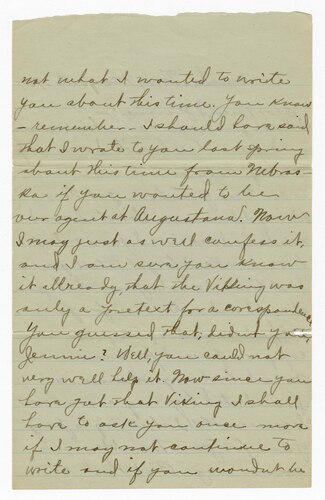 not what I wanted to write
you about this time. You know
- remember - I should have said
that I wrote to you last spring
about this time from Nebras-
ka if you wanted to be
our agent at Augustana. Now
I may just as well confess it,
and I am sure you know
it allready, that the Viking was
only a pretext for a corespondence.
You guessed that, didn't you,
Jennie? Well, you could not
very well help it. Now since you
have got that Viking I shall
have to ask you once more
if I may not continue to
write and if you wouldnt be